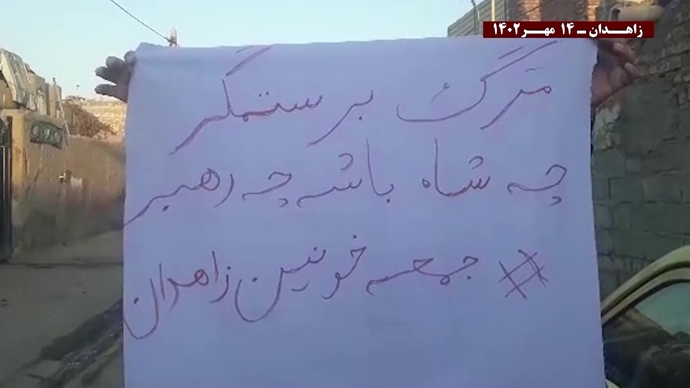 زاهدان ـ ۱۴ مهر۱۴۰۲
مرگ بر ستمگر
چه شاه باشه چه رهبر
# جمعه خونین زاهدان